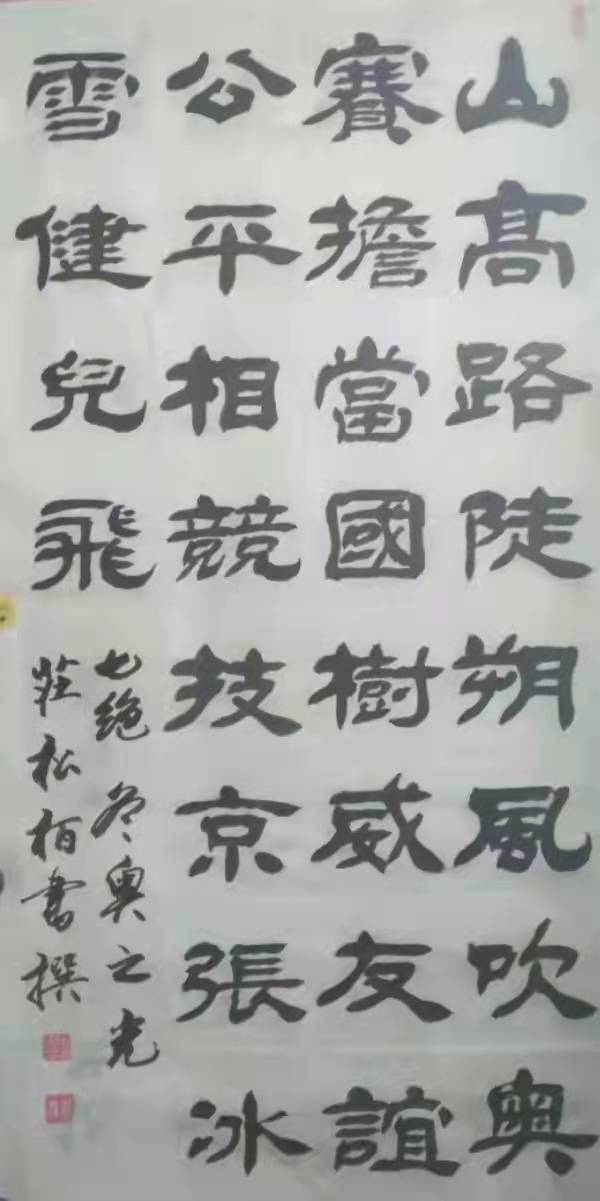 山高路陡朔風吹奥
賽擔當國樹威友誼
公平相競技京張冰
雪健兒飛
七绝 冬奥之光
莊松柏書撰